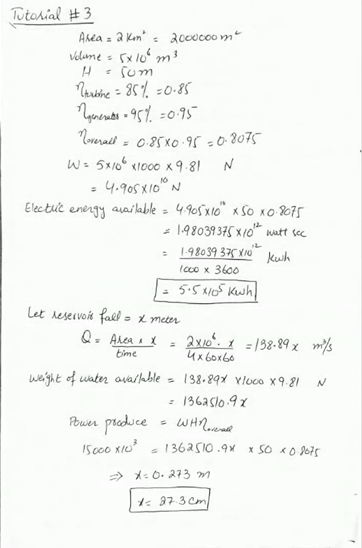 Tutorial # 3
Area = 2 Km² = 2000000 m²
Volume = 5x10⁶ m³
H = 50m
ηturbine = 85% = 0.85
ηgenerator = 95% = 0.95
ηoverall = 0.85x0.95 = 0.8075
W = 5x10⁶ x1000 x 9.81 N
= 4.905x10¹⁰ N
Electric energy available = 4.905x10¹⁰ x 50 x 0.8075
= 1.98039375x10¹² watt sec
= 1.98039375x10¹² / 1000 x 3600 Kwh
= 5.5 x10⁵ Kwh
Let reservoir fall = x meter
Q = Area x x / time = 2x10⁶ . x / 4x60x60 = 138.89 x m³/s
Weight of water available = 138.89x x1000 x 9.81 N
= 1362510.9x
Power produce = WHηoverall
15000 x10³ = 1362510.9x x 50 x 0.8075
⇒ x = 0.273 m
x = 27.3 cm